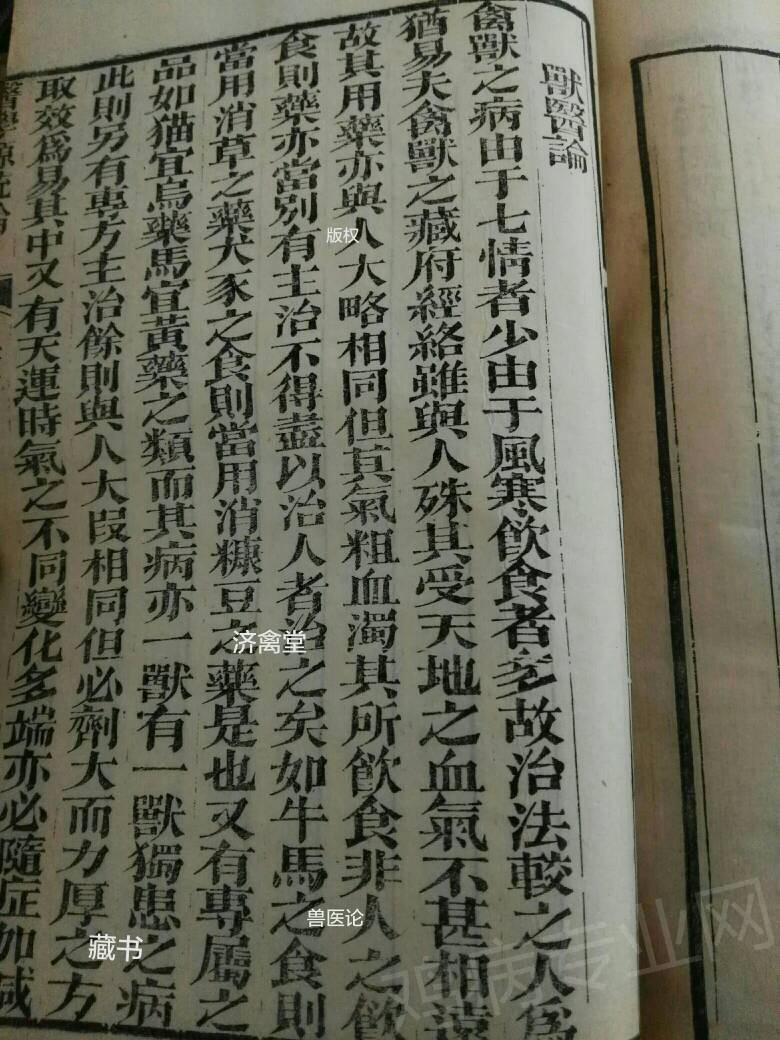 獸醫論
禽獸之病由于七情者少由于風寒飲食者多故治法較之人爲
猶易夫禽獸之藏府經絡雖與人殊其受天地之血氣不甚相遠
故其用藥亦與人大略相同但其氣粗血濁其所飲食非人之飲
食則藥亦當別有主治不得盡以治人者治之矣如牛馬之食則
當用消草之藥犬豕之食則當用消糠豆之藥是也又有專屬之
品如猫宜烏藥馬宜黃藥之類而其病亦一獸有一獸獨患之病
此則另有專方主治餘則與人大段相同但必劑大而力厚之方
取效爲易其中又有天運時氣之不同變化多端亦必隨症加减
醫學源流論
版权
济禽堂
兽医论
藏书
鸡病专业网